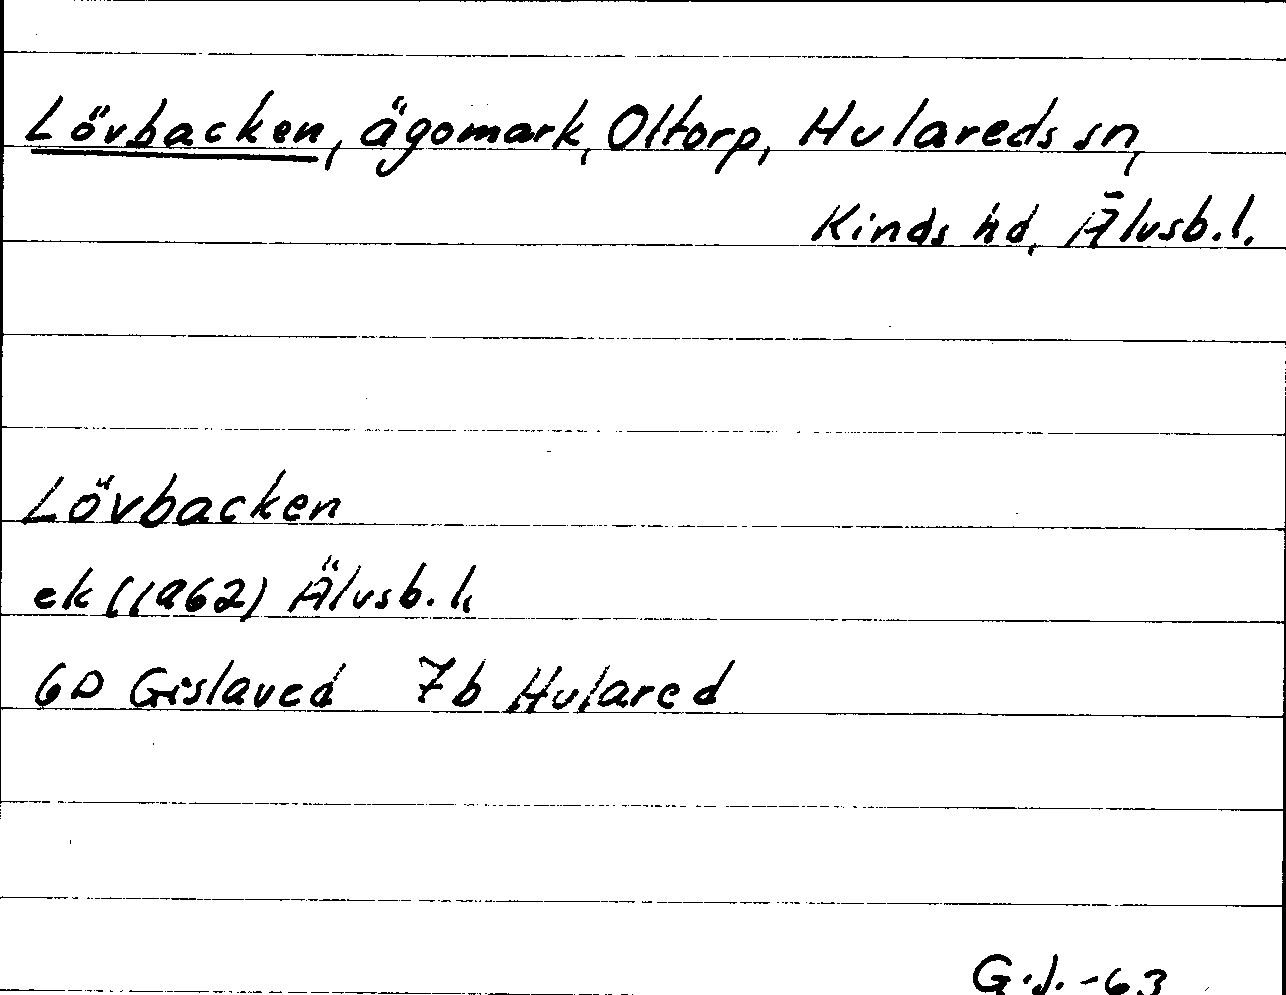 Lövbacken, ägomark, Oltorp, Hulareds sn,
Kinds hd, Älvsb.l.
Lövbacken
ek (1962) Älvsb. l.
6D Gislaved 7b Hulared
G.J. -63